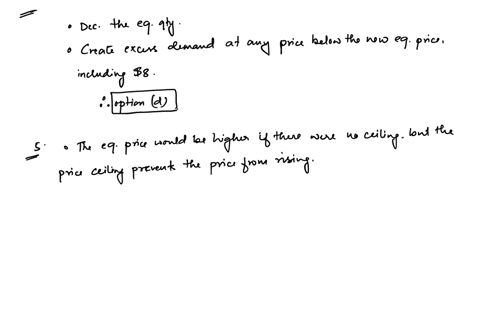 • Dec. the eq. qty.
• Create excess demand at any price below the new eq. price,
including $8.
∴ option (d)
5. • The eq. price would be higher if there were no ceiling. but the
price ceiling prevents the price from rising.